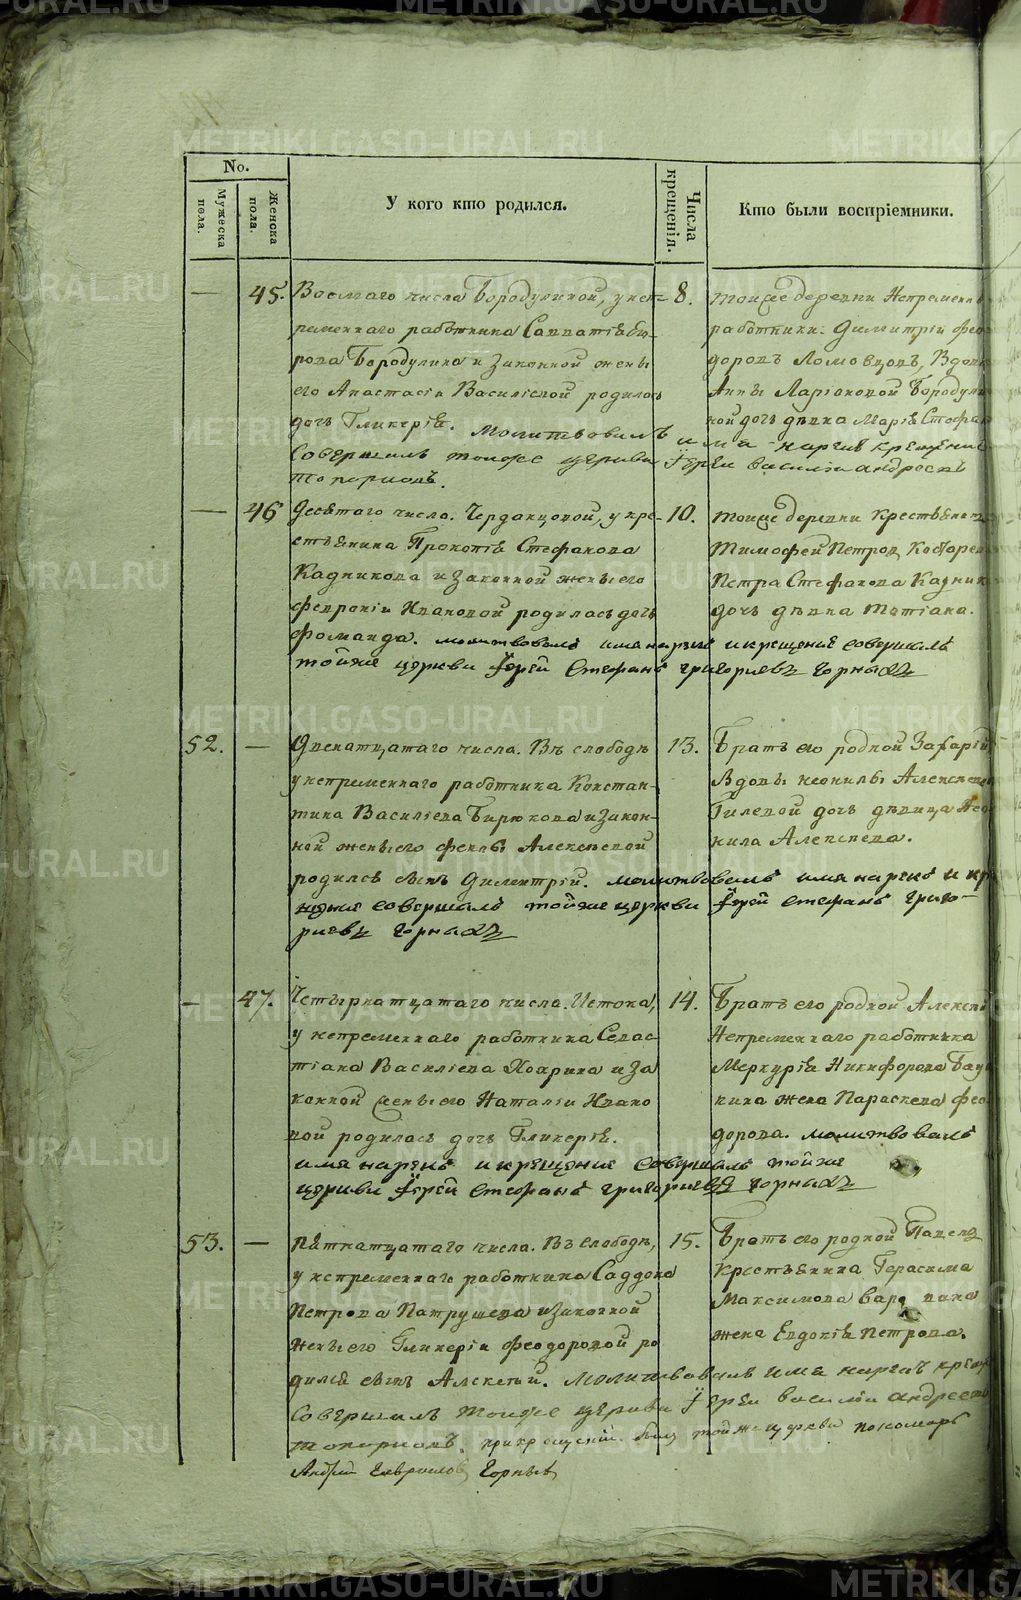 No.
Мужеска пола.
Женска пола.
У кого кто родился.
Числа крещенія.
Кто были воспріемники.
— 45. Восмаго числа Бородулиной, у неп-
ременнаго работника Савватія
рова Бородулина и законной жены
его Анастасіи Василіевой родилась
дочь Гликерія. Молитвовалъ имя нарекъ и крещеніе
совершилъ тойже церкви Іерей Василій Андреевъ
Топорковъ.
8. Тойже деревни Непременны
работники: Димитрій Фео-
доровъ Ломовцовъ, Вдовы
Анны Ларіоновой Бородули
ной дочь девка Марія Стефан
— 46 Десятаго числа. Черданцовой, у кре-
стьянина Прокопія Стефанова
Кадникова и законной жены его
Февроніи Ивановой родилась дочь
Фомаида. молитвовалъ имя нарекъ и крещеніе совершалъ
тойже церкви Іерей Стефанъ Григорievъ Горныхъ
10. Тойже деревни Крестьянинъ
Тимофей Петров Косторев
Петра Стефанова Кадник
дочь девка Татіана.
52. — Двенатцатаго числа. Въ слободе
у непременнаго работника Констан-
тина Василіева Бирюкова и закон-
ной жены его Феклы Алексеевой
родился сынъ Димитрій. молитвовалъ имя нарекъ и кре
щеніе совершалъ тойже церкви Іерей Стефанъ Григо-
риевъ Горныхъ
13. Братъ его родной Захарій
Вдовы Неонилы Алексеев
Гилевой дочь девица Нео
нила Алексеева.
— 47. Четырнатцатаго числа. Истока,
у непременнаго работника Севас-
тіана Василіева Коярина и за
конной жены его Наталіи Ивано
вой родилась дочь Гликерія.
имя нарекъ и крещеніе совершалъ тойже
церкви Іерей Стефанъ Григориевъ Горныхъ
14. Братъ его родной Алексей
Непременнаго работника
Меркурія Никифорова
жена Параскева Фео-
дорова. молитвовалъ
53. — Пятнатцатаго числа. Въ слободе,
у непременнаго работника Саддока
Петрова Патрушева и законной
жены его Гликеріи Феодоровой ро
дился сынъ Алексей. Молитвовалъ имя нарекъ креще
совершилъ тойже церкви Іерей Василій Андреевъ
Топорковъ. при крещеніи былъ тойже церкви пономарь
Андрей Гавриловъ Горныхъ
15. Братъ его родной Павелъ
Крестьянина Герасима
Максимова
жена Евдокія Петрова.
METRIKI.GASO-URAL.RU